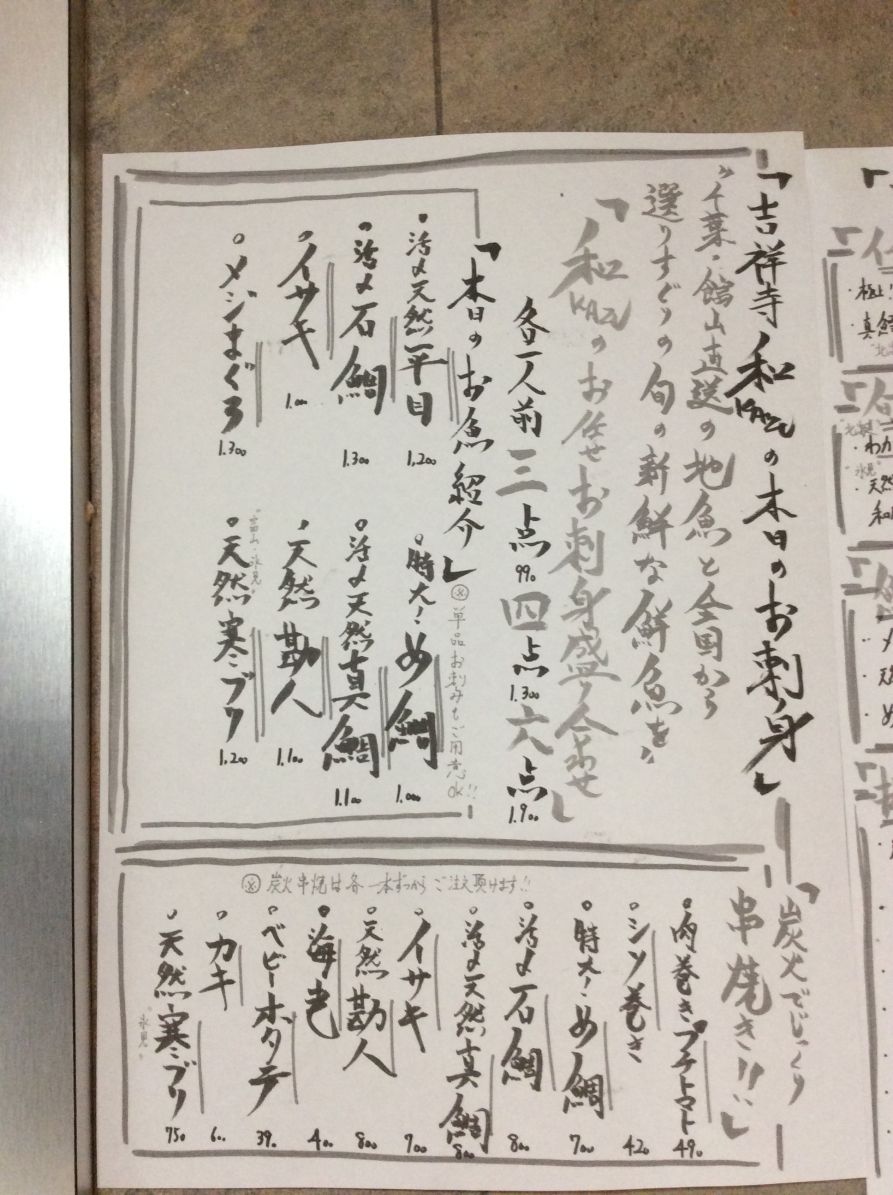 「吉祥寺 和 KAZUの本日のお刺身」
"千葉・館山直送の地魚と全国から
選りすぐりの旬の新鮮な鮮魚を"
「和 KAZUのお任せお刺身盛り合わせ」
各一人前 三点 990 四点 1.300 六点 1.900
「本日のお魚紹介」
※単品お刺みもご用意ok!!
活〆天然平目 1,200
特大!め鯛 1.000
活〆石鯛 1.300
活〆天然真鯛 1.100
イサキ 1.000
天然勘八 1.100
メジまぐろ 1.300
"富山・氷見"
天然寒ブリ 1.200
「炭火でじっくり
串焼き!!」
肉巻きプチトマト 490
シソ巻き 420
特大!め鯛 700
活〆石鯛 800
活〆天然真鯛 800
イサキ 700
天然勘八 800
海老 400
ベビーホタテ 390
カキ 600
天然寒ブリ 750
"氷見"
※炭火串焼は各一本ずつからご注文頂けます!!